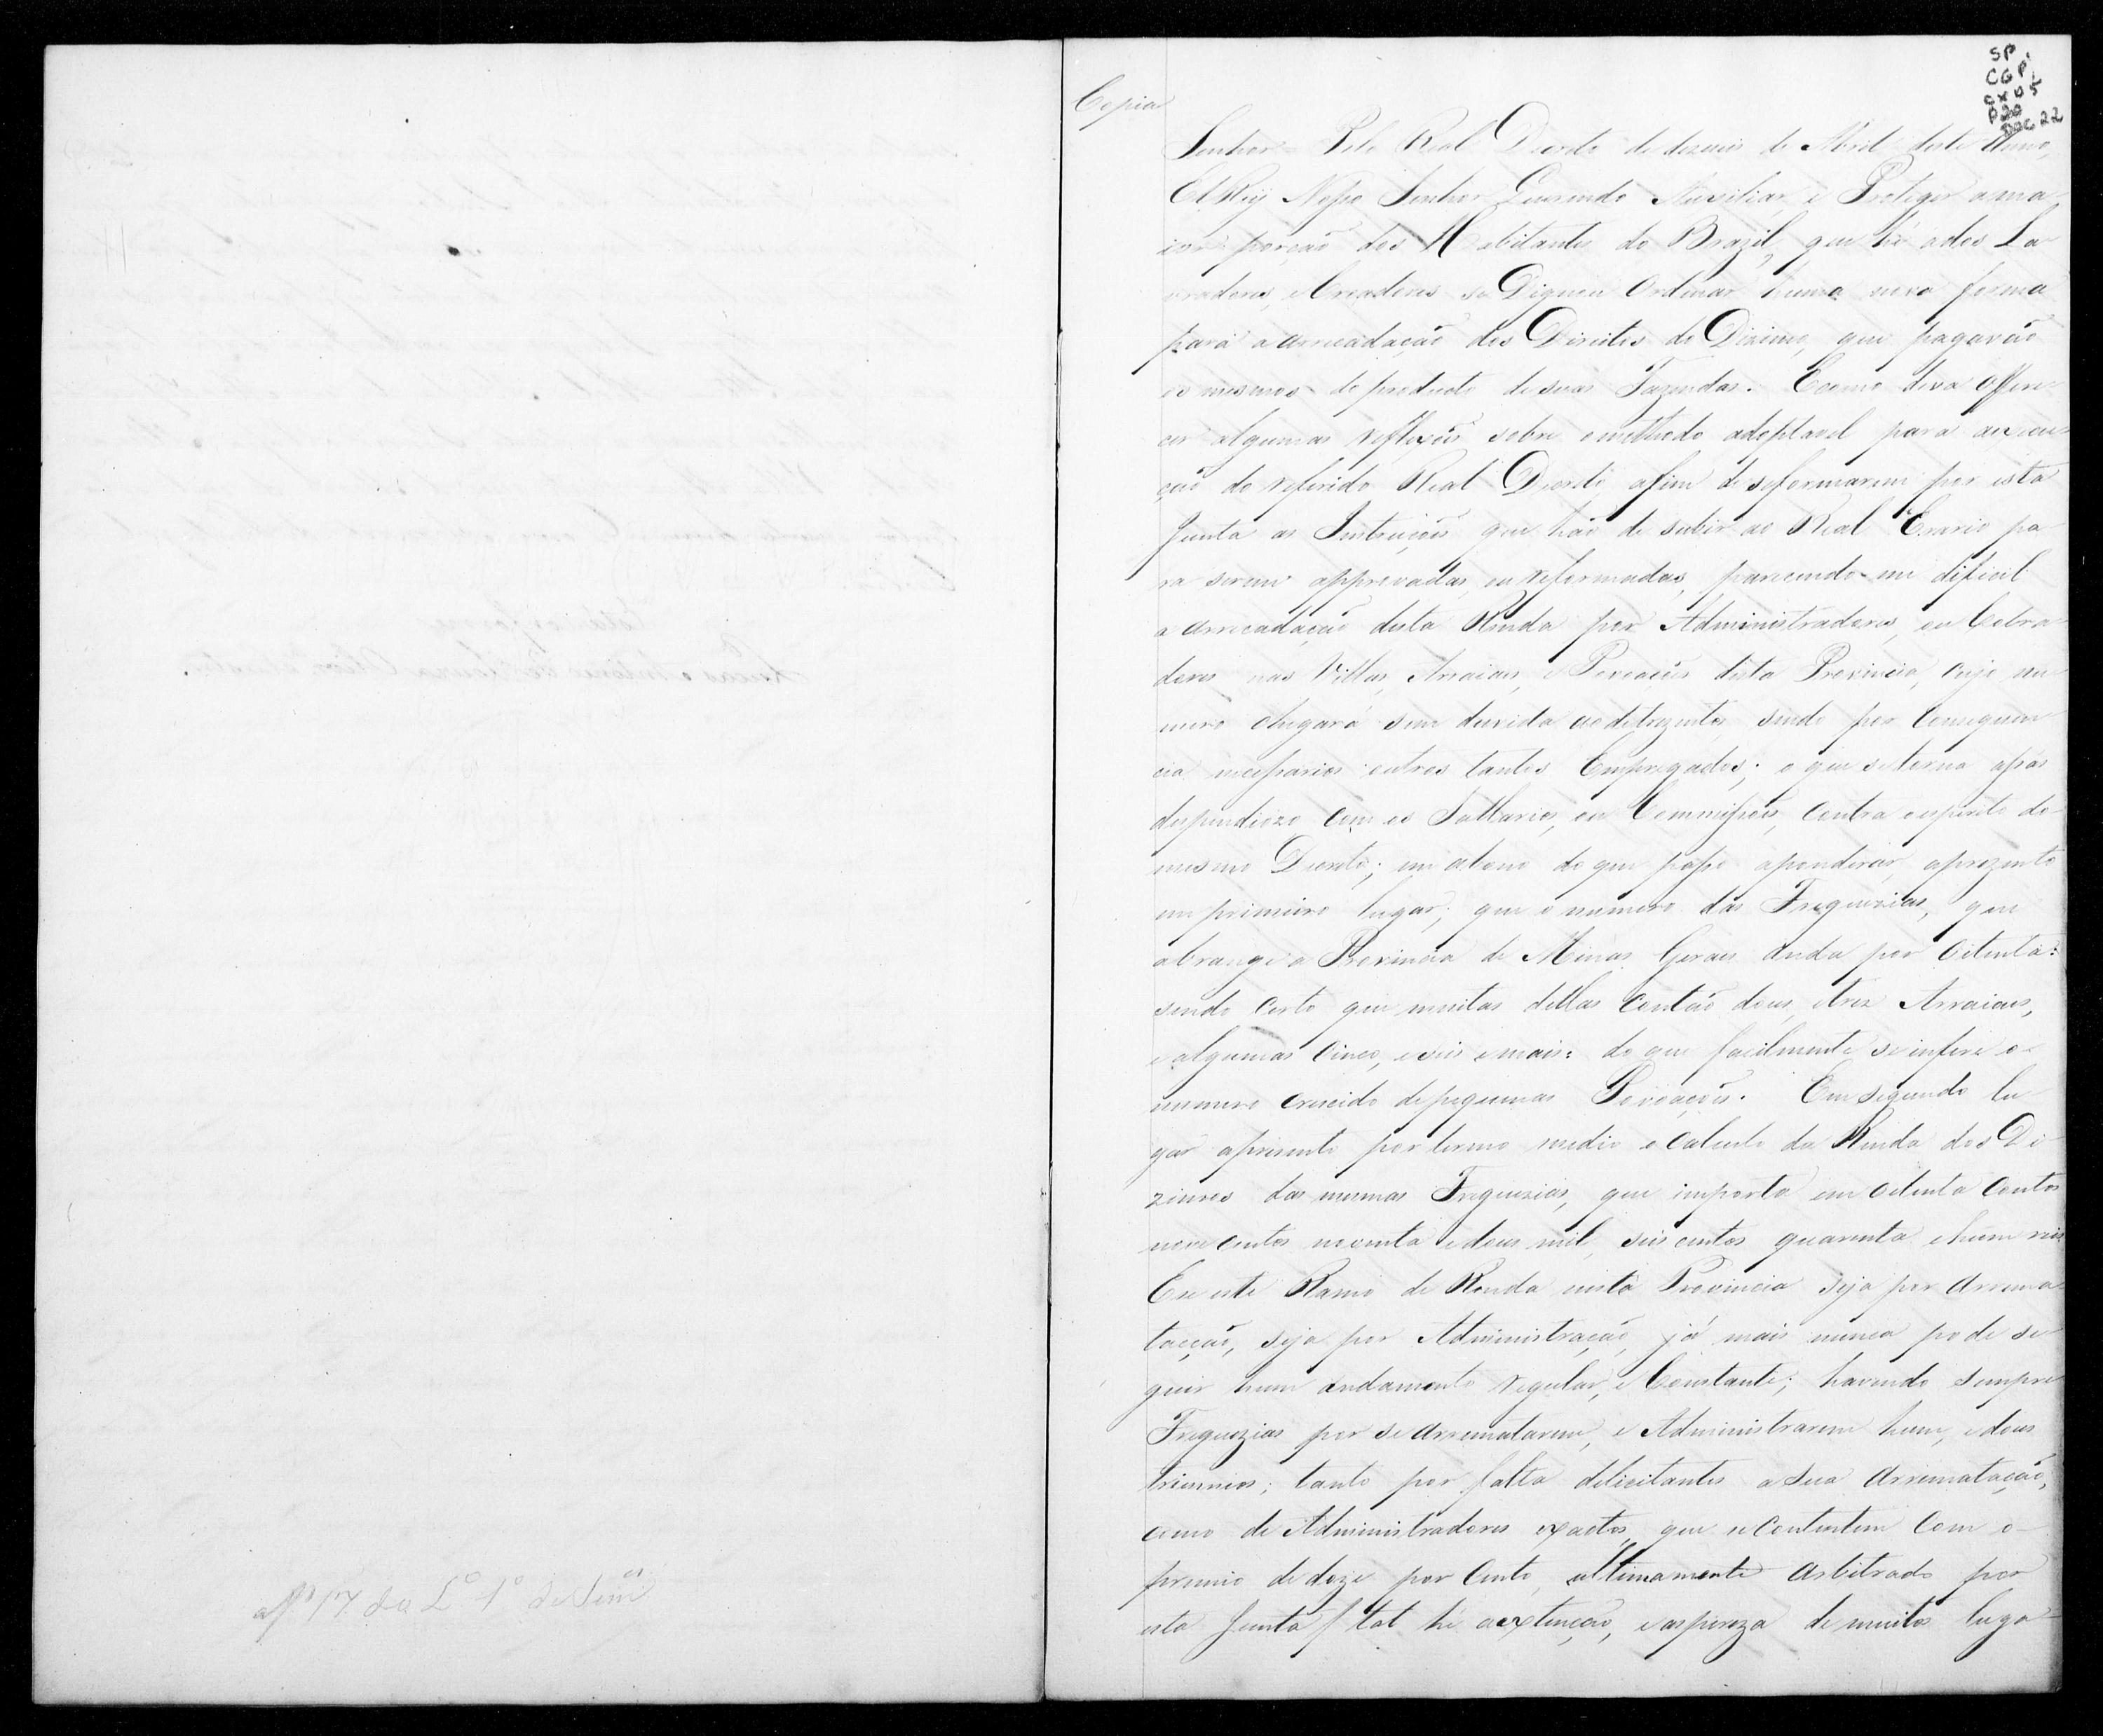 SP
CGP1
cx 05
P20
Doc 22
Copia
Senhor = Pelo Real Decreto de dezaseis de Abril deste Anno,
ElRey Nosso Senhor Querendo Auxiliar, e Proteger a ma
ior porção dos Habitantes do Brazil, que hé a dos La
vradores, e Creadores se Dignou Ordinar huma nova forma
para a arrecadação dos Direitos do Dizimo, que pagarão
os mesmos do producto de suas Fazendas. E como deva offere
cer algumas reflexões sobre o methodo adoptavel para a execu
ção do referido Real Decreto, afim de se formarem por esta
Junta as Instruções que hão de subir ao Real Erario pa
ra serem approvadas, ou reformadas, parecendo-me dificil
a arrecadação desta Renda por Administradores, ou Cobra
dores nas Villas, Arraiaes, e Povoações desta Provincia, cujo nu
mero chegará sem duvida ao de trezentos, sendo por consequen
cia necessarios outros tantos Empregados; o que se torna assás
despendiozo com os Sallarios, ou Commissões, contra o espirito do
mesmo Decreto; em abono do que passo a ponderar, aprezento
em primeiro lugar, que o numero das Freguezias, que
abrange a Provincia de Minas Geraes anda por oitenta:
sendo certo que muitas dellas contão dous, e trez Arraiaes,
e algumas cinco, e seis e mais: do que facilmente se infere o
numero crescido de pequenas Povoações. Em segundo lu
gar apresento por termo medio o calculo da Renda dos Di
zimos das mesmas Freguezias, que importa em oitenta contos
nove centos noventa e dous mil, seis centos quarenta e hum reis
E se este Ramo de Renda nesta Provincia seja por Arrema
tacção, seja por Administração, já mais nunca pode se
guir hum andamento regular, e Constante; havendo sempre
Freguezias por se arrematarem, e Administrarem hum, e dous
triennios; tanto por falta de licitantes a sua Arrematação,
como de Administradores exactos, que se contentem com o
premio de doze por cento, ultimamente arbitrado por
esta Junta / tal hé a extenção, e aspereza de muitos luga